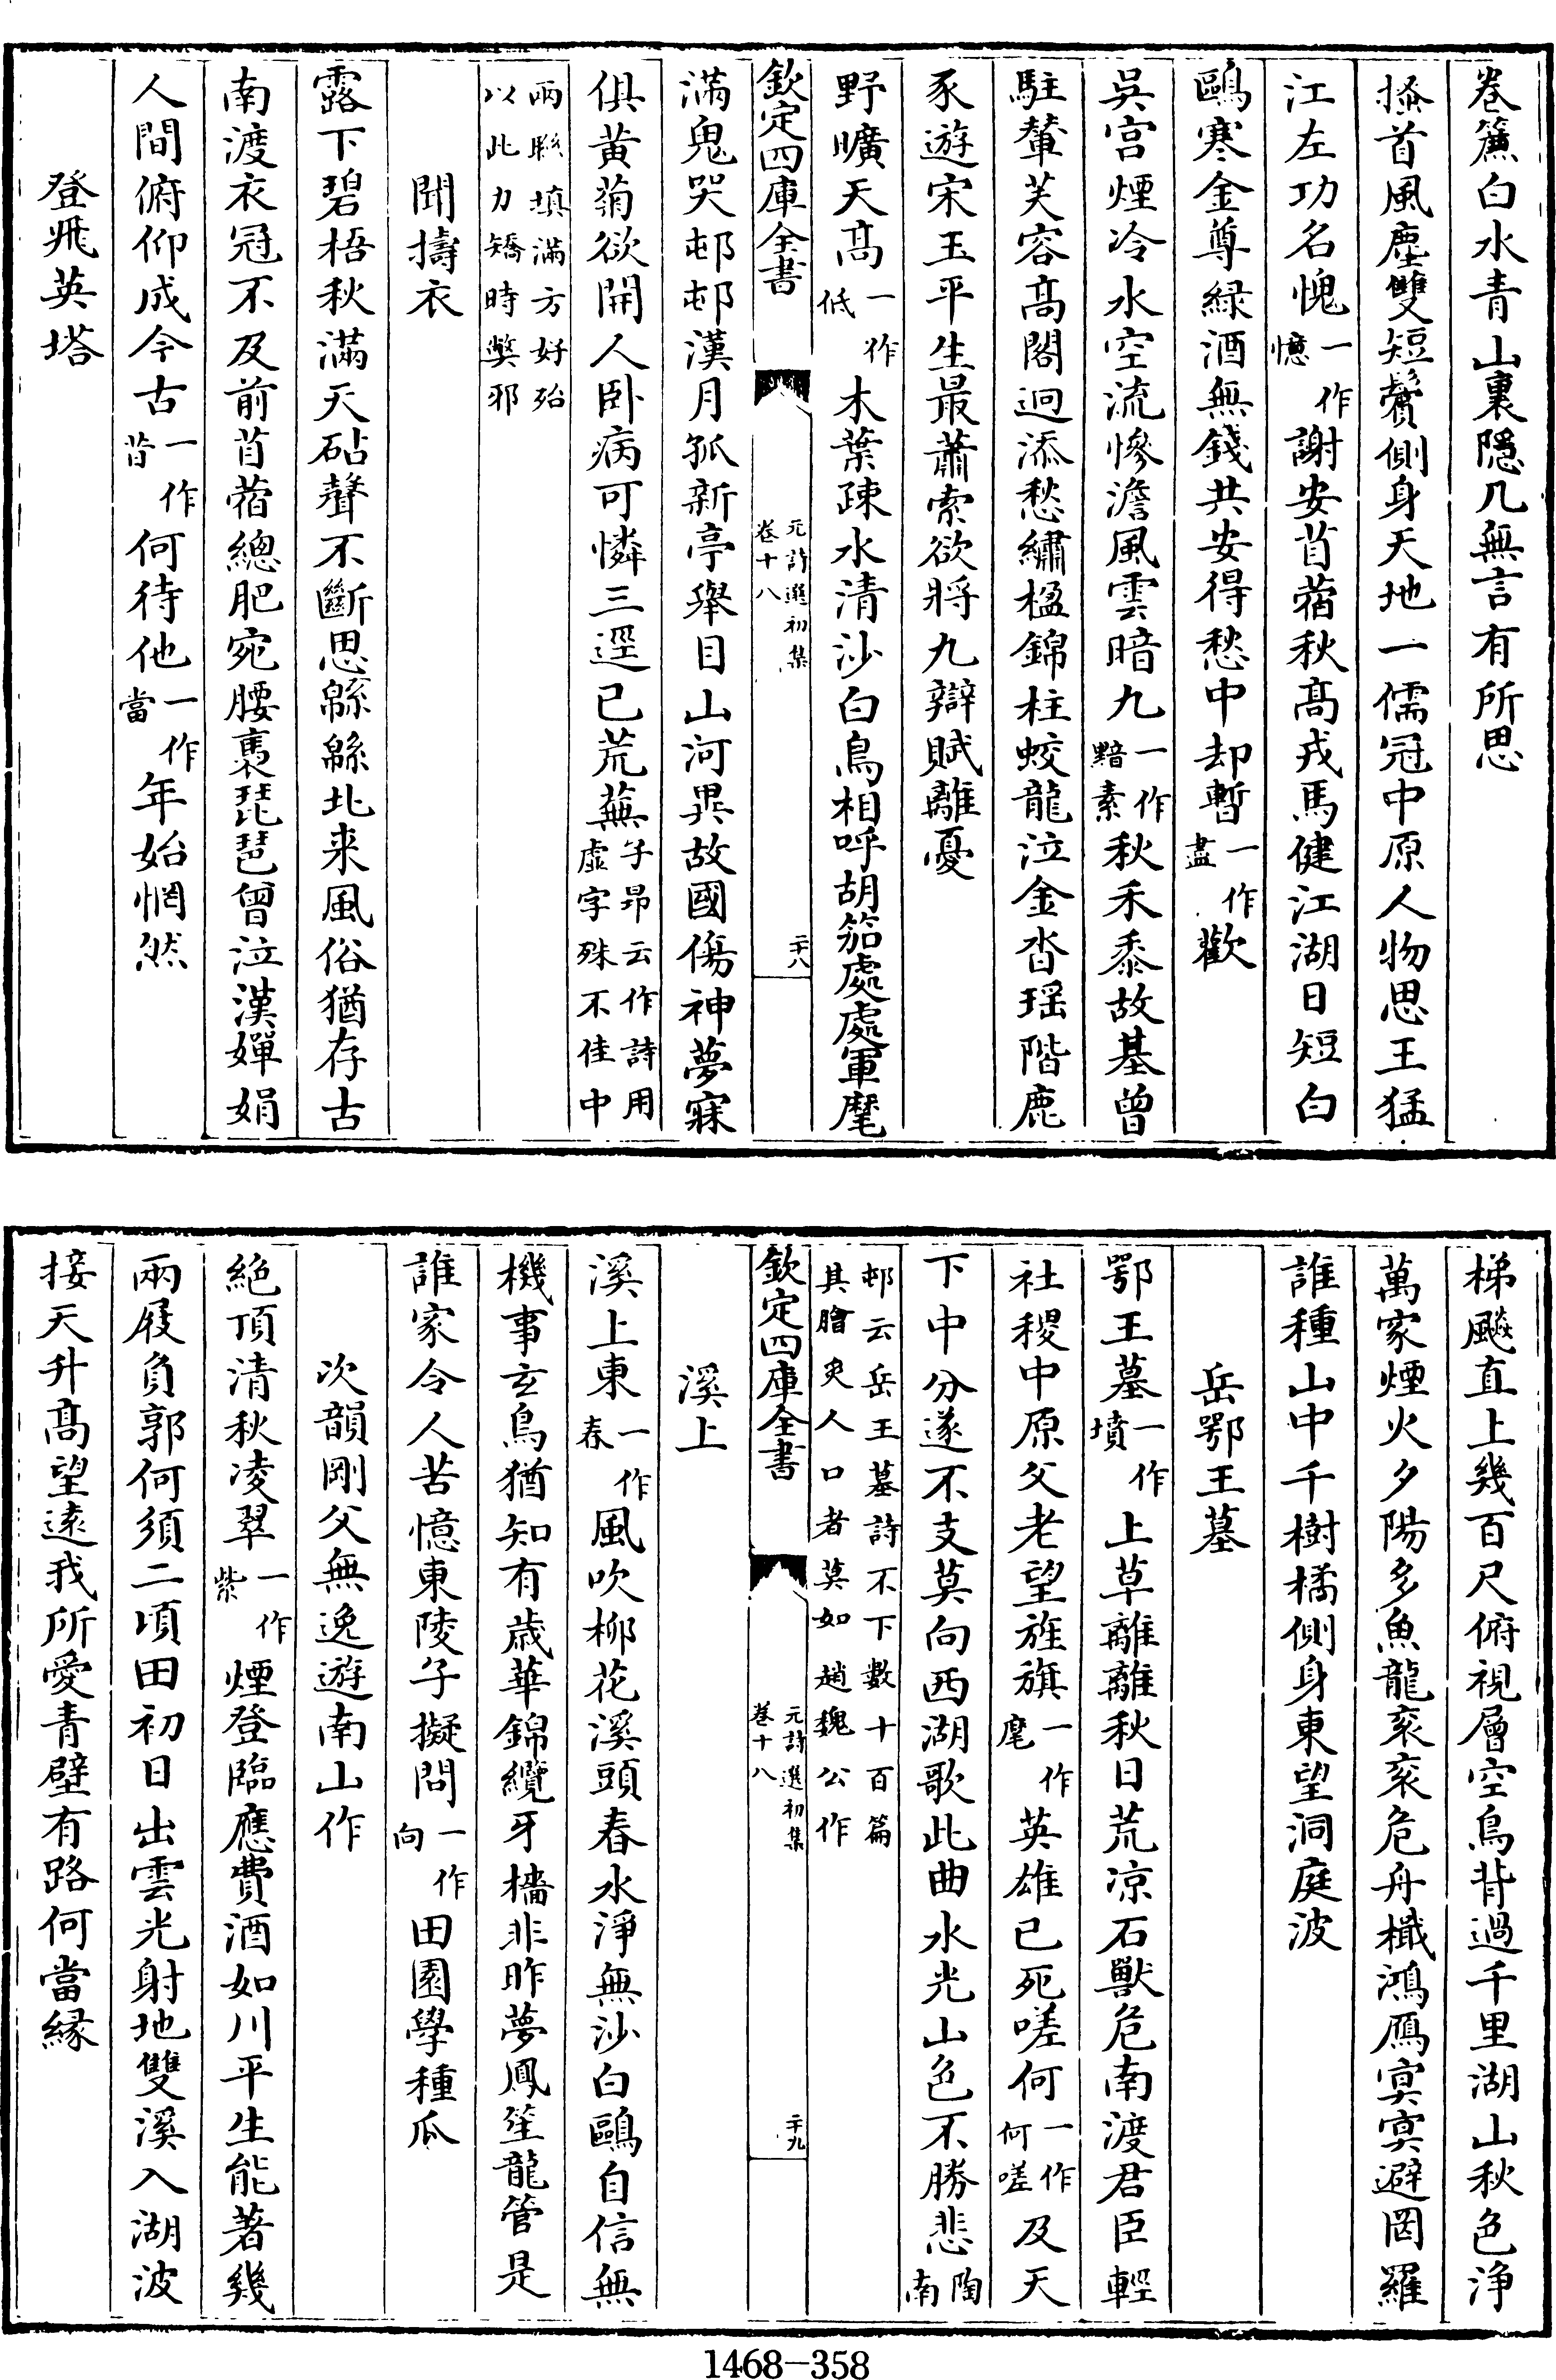 卷簾白水青山裏隱几無言有所思
搔首風塵雙短鬢側身天地一儒冠中原人物思王猛
江左功名愧一作憶謝安苜蓿秋高戎馬健江湖日短白
鷗寒金尊緑酒無錢共安得愁中却暫一作盡歡
吳宫煙冷水空流慘澹風雲暗九一作黯素秋禾黍故基曾
駐輦芙容髙閣迥添愁繡楹錦柱蛟龍泣金沓瑶階鹿
豕遊宋玉平生最蕭索欲將九辯賦離憂
野曠天髙一作低木葉疎水清沙白鳥相呼胡笳處處軍麾
欽定四庫全書 元詩選初集 卷十八 二十八
滿鬼哭邨邨漢月孤新亭舉目山河異故國傷神夢寐
俱黄菊欲開人卧病可憐三逕已荒蕪子昂云作詩用虚字殊不佳中
兩聨填滿方好殆以此力矯時獘邪
聞擣衣
露下碧梧秋滿天砧聲不斷思緜緜北来風俗猶存古
南渡衣冠不及前苜蓿總肥宛腰褭琵琶曾泣漢嬋娟
人間俯仰成今古一作昔何待他一作當年始惘然
登飛英塔
梯飈直上幾百尺俯視層空鳥背過千里湖山秋色浄
萬家煙火夕陽多魚龍衮衮危舟檝鴻鴈㝠㝠避罔羅
誰種山中千樹橘側身東望洞庭波
岳鄂王墓
鄂王墓一作墳上草離離秋日荒凉石獸危南渡君臣輕
社稷中原父老望旌旗一作麾英雄已死嗟何一作何嗟及天
下中分遂不支莫向西湖歌此曲水光山色不勝悲陶南
邨云岳王墓詩不下數十百篇其膾炙人口者莫如趙魏公作
欽定四庫全書 元詩選初集 卷十八 二十九
溪上
溪上東一作春風吹柳花溪頭春水淨無沙白鷗自信無
機事玄鳥猶知有歳華錦纜牙檣非昨夢鳳笙龍管是
誰家令人苦憶東陵子擬問一作向田園學種瓜
次韻剛父無逸遊南山作
絶頂清秋凌翠一作紫煙登臨應費酒如川平生能著幾
兩屐負郭何須二頃田初日出雲光射地雙溪入湖波
接天升髙望逺我所愛青壁有路何當縁
1468—358